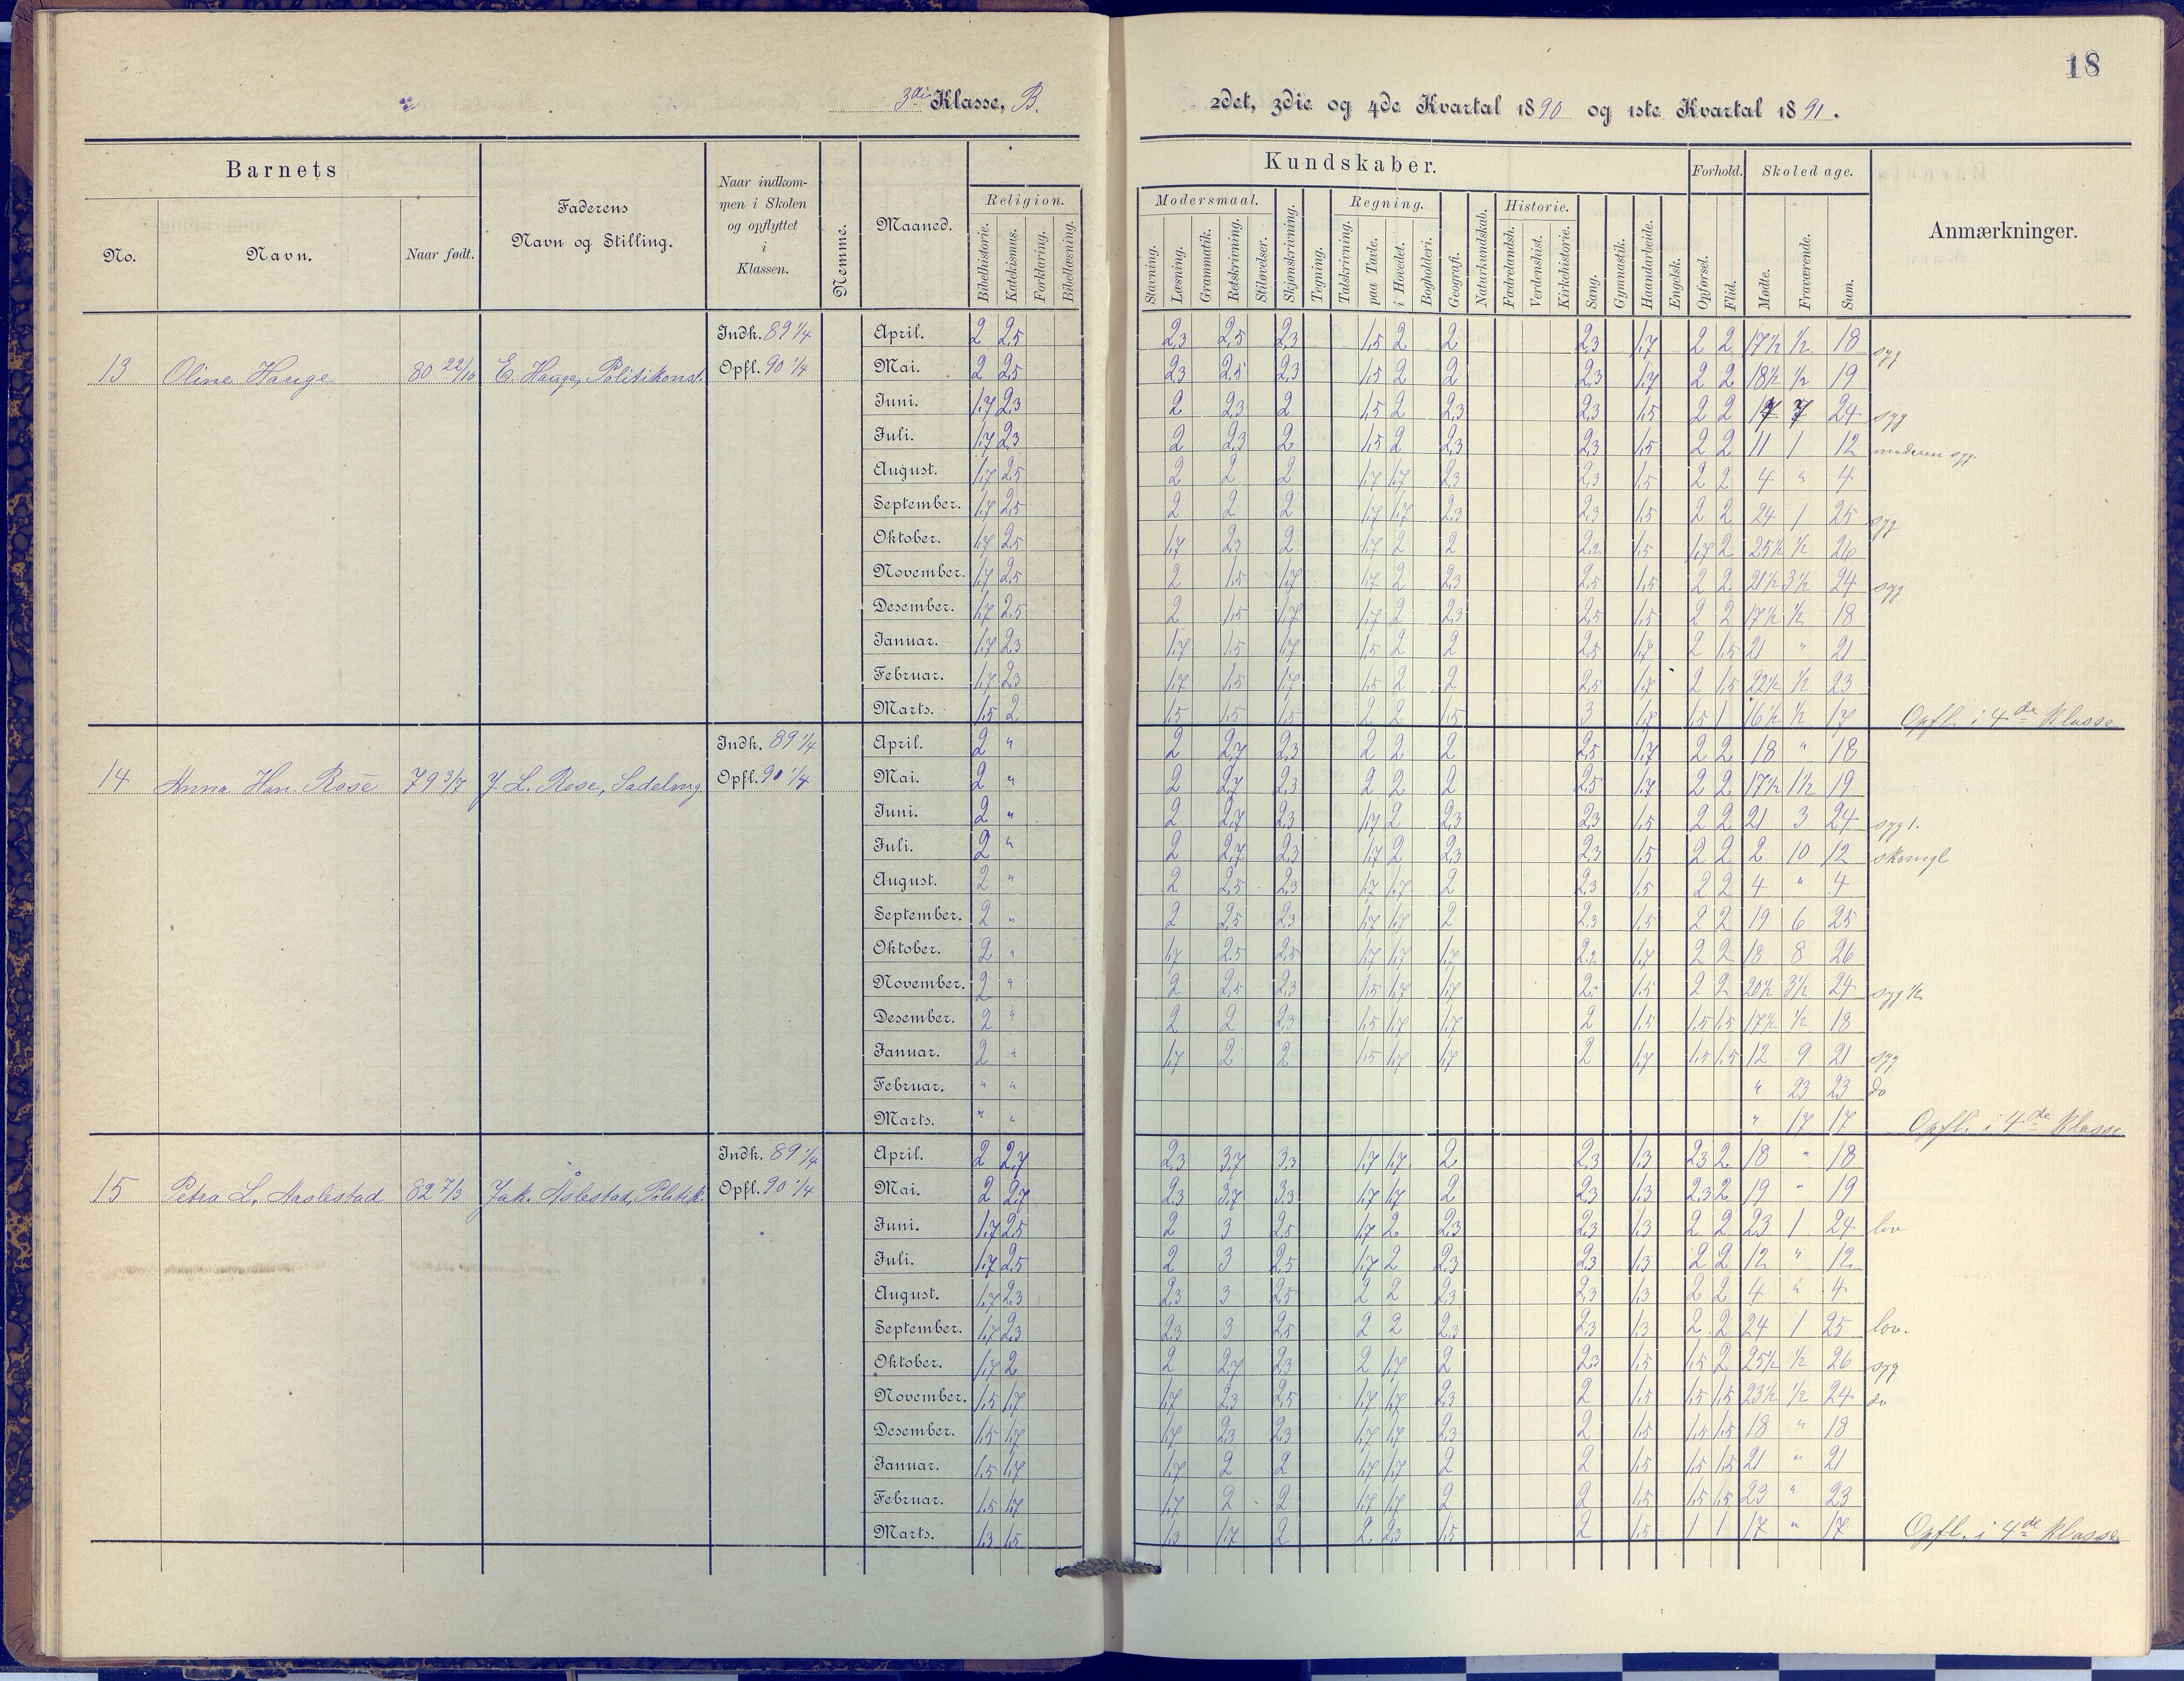 18
3die Klasse, B.
2det, 3die og 4de Kvartal 1890 og 1ste Kvartal 1891.
Barnets
No.
Navn.
Naar født.
Faderens
Navn og Stilling.
Naar indkom-
men i Skolen
og opflyttet
i
Klassen.
Nemme.
Maaned.
Kundskaber.
Religion.
Bibelhistorie.
Katekismus.
Forklaring.
Bibellæsning.
Modersmaal.
Stavning.
Læsning.
Grammatik.
Retskrivning.
Stiløvelser.
Skjønskrivning.
Tegning.
Regning.
Talskrivning.
paa Tavle.
i Hovedet.
Bogholderi.
Geografi.
Naturkundskab.
Historie.
Fædrelandsh.
Verdenshist.
Kirkehistorie.
Sang.
Gymnastik.
Haandarbeide.
Engelsk.
Forhold.
Opførsel.
Flid.
Skoledage.
Mødte.
Fraværende.
Sum.
Anmærkninger.
13 Oline Hauge 80 22/10 E. Hauge, Politikonst.
Indk. 89 1/4
Opfl. 90 1/4
April. 2 2,5 2,3 2,5 2,3 1,5 2 2 2,3 1,7 2 2 17½ ½ 18 syg
Mai. 2 2,5 2,3 2,5 2,3 1,5 2 2 2,3 1,7 2 2 18½ ½ 19
Juni. 1,7 2,3 2 2,3 2 1,5 2 2,3 2,3 1,5 2 2 17 7 24 syg
Juli. 1,7 2,3 2 2,3 2 1,5 2 2,3 2,3 1,5 2 2 11 1 12 moderen syg.
August. 1,7 2,5 2 2 2 1,7 1,7 2,3 2,3 1,5 2 2 4 " 4
September. 1,7 2,5 2 2 2 1,7 1,7 2,3 2,3 1,5 2 2 24 1 25 syg
Oktober. 1,7 2,5 1,7 2,3 2 1,7 2 2 1,5 1,7 2 25½ ½ 26
November. 1,7 2,5 2 1,5 1,7 1,7 2 2,3 2,5 1,5 2 2 21½ 3½ 24 syg
Desember. 1,7 2,5 2 1,5 1,7 1,7 2 2,3 2,5 1,5 2 2 17½ ½ 18
Januar. 1,7 2,3 1,7 1,5 1,7 1,5 2 2 2,5 1,7 2 1,5 21 " 21
Februar. 1,7 2,3 1,7 1,5 1,7 1,5 2 2 2,5 1,7 2 1,5 22½ ½ 23
Marts. 1,5 2 1,5 1,5 1,5 2 2 1,5 3 1,7 1,5 1 16½ ½ 17 Opfl. i 4de Klasse
14 Anna Han. Rose 79 3/7 J L. Rose, Sadelmg
Indk. 89 1/4
Opfl. 90 1/4
April. 2 " 2 2,7 2,3 2 2 2 2,5 1,7 2 2 18 " 18
Mai. 2 " 2 2,7 2,3 2 2 2 2,5 1,7 2 2 17½ 1½ 19
Juni. 2 " 2 2,7 2,3 1,7 2 2,3 2,3 1,5 2 2 21 3 24 syg 1.
Juli. 2 " 2 2,7 2,3 1,7 2 2,3 2,3 1,5 2 2 2 10 12 skomgl
August. 2 " 2 2,5 2,3 1,7 1,7 2 2,3 1,5 2 2 4 " 4
September. 2 " 2 2,5 2,3 1,7 1,7 2 2,3 1,5 2 2 19 6 25
Oktober. 2 " 1,7 2,5 2,5 1,7 1,7 1,7 1,7 2 2 18 8 26
November. 2 " 2 2,5 2,3 1,5 1,7 1,7 1,5 2 2 20½ 3½ 24 syg ½
Desember. 2 " 2 2 2,3 1,5 1,7 1,7 2 1,5 1,5 1,5 17½ ½ 18
Januar. 2 " 1,7 2 2 1,5 1,7 1,7 2 1,7 1,5 1,5 12 9 21 syg
Februar. " " " 23 23 do
Marts. " " " 17 17 Opfl. i 4de Klasse
15 Petra L. Aaslestad 82 7/3 Jak. Åslestad, Politik.
Indk. 89 1/4
Opfl. 90 1/4
April. 2 2,7 2,3 3,7 3,3 1,7 1,7 2 2,3 1,3 2,3 2 18 " 18
Mai. 2 2,7 2,3 3,7 3,3 1,7 1,7 2 2,3 1,3 2,3 2 19 " 19
Juni. 1,7 2,5 2 3 2,5 1,7 2 2,3 2,3 1,3 2 2 23 1 24 lov
Juli. 1,7 2,5 2 3 2,5 1,7 2 2,3 2,3 1,3 2 2 12 " 12
August. 1,7 2,3 2,3 3 2,5 2 2 2,3 2,3 1,3 2 2 4 " 4
September. 1,7 2,3 2,3 3 2,5 2 2 2,3 2,3 1,3 2 2 24 1 25 lov.
Oktober. 1,7 2 2 2,7 2,3 2 1,7 2 2,3 1,5 1,5 2 25½ ½ 26 syg
November. 1,5 1,7 1,7 2,3 2,5 1,7 1,7 2,3 2 1,5 1,5 1,5 23½ ½ 24 do
Desember. 1,5 1,7 1,7 2,3 2,3 1,7 1,7 2,3 2 1,5 1,5 1,5 18 " 18
Januar. 1,5 1,7 1,7 2 2 1,7 1,7 2 2 1,5 1,5 1,5 21 " 21
Februar. 1,5 1,7 1,7 2 2 1,7 1,7 2 2 1,5 1,5 1,5 23 " 23
Marts. 1,3 1,5 1,3 1,7 2 2 2,3 1,5 2 1,5 1 1 17 " 17 Opfl. i 4de Klasse